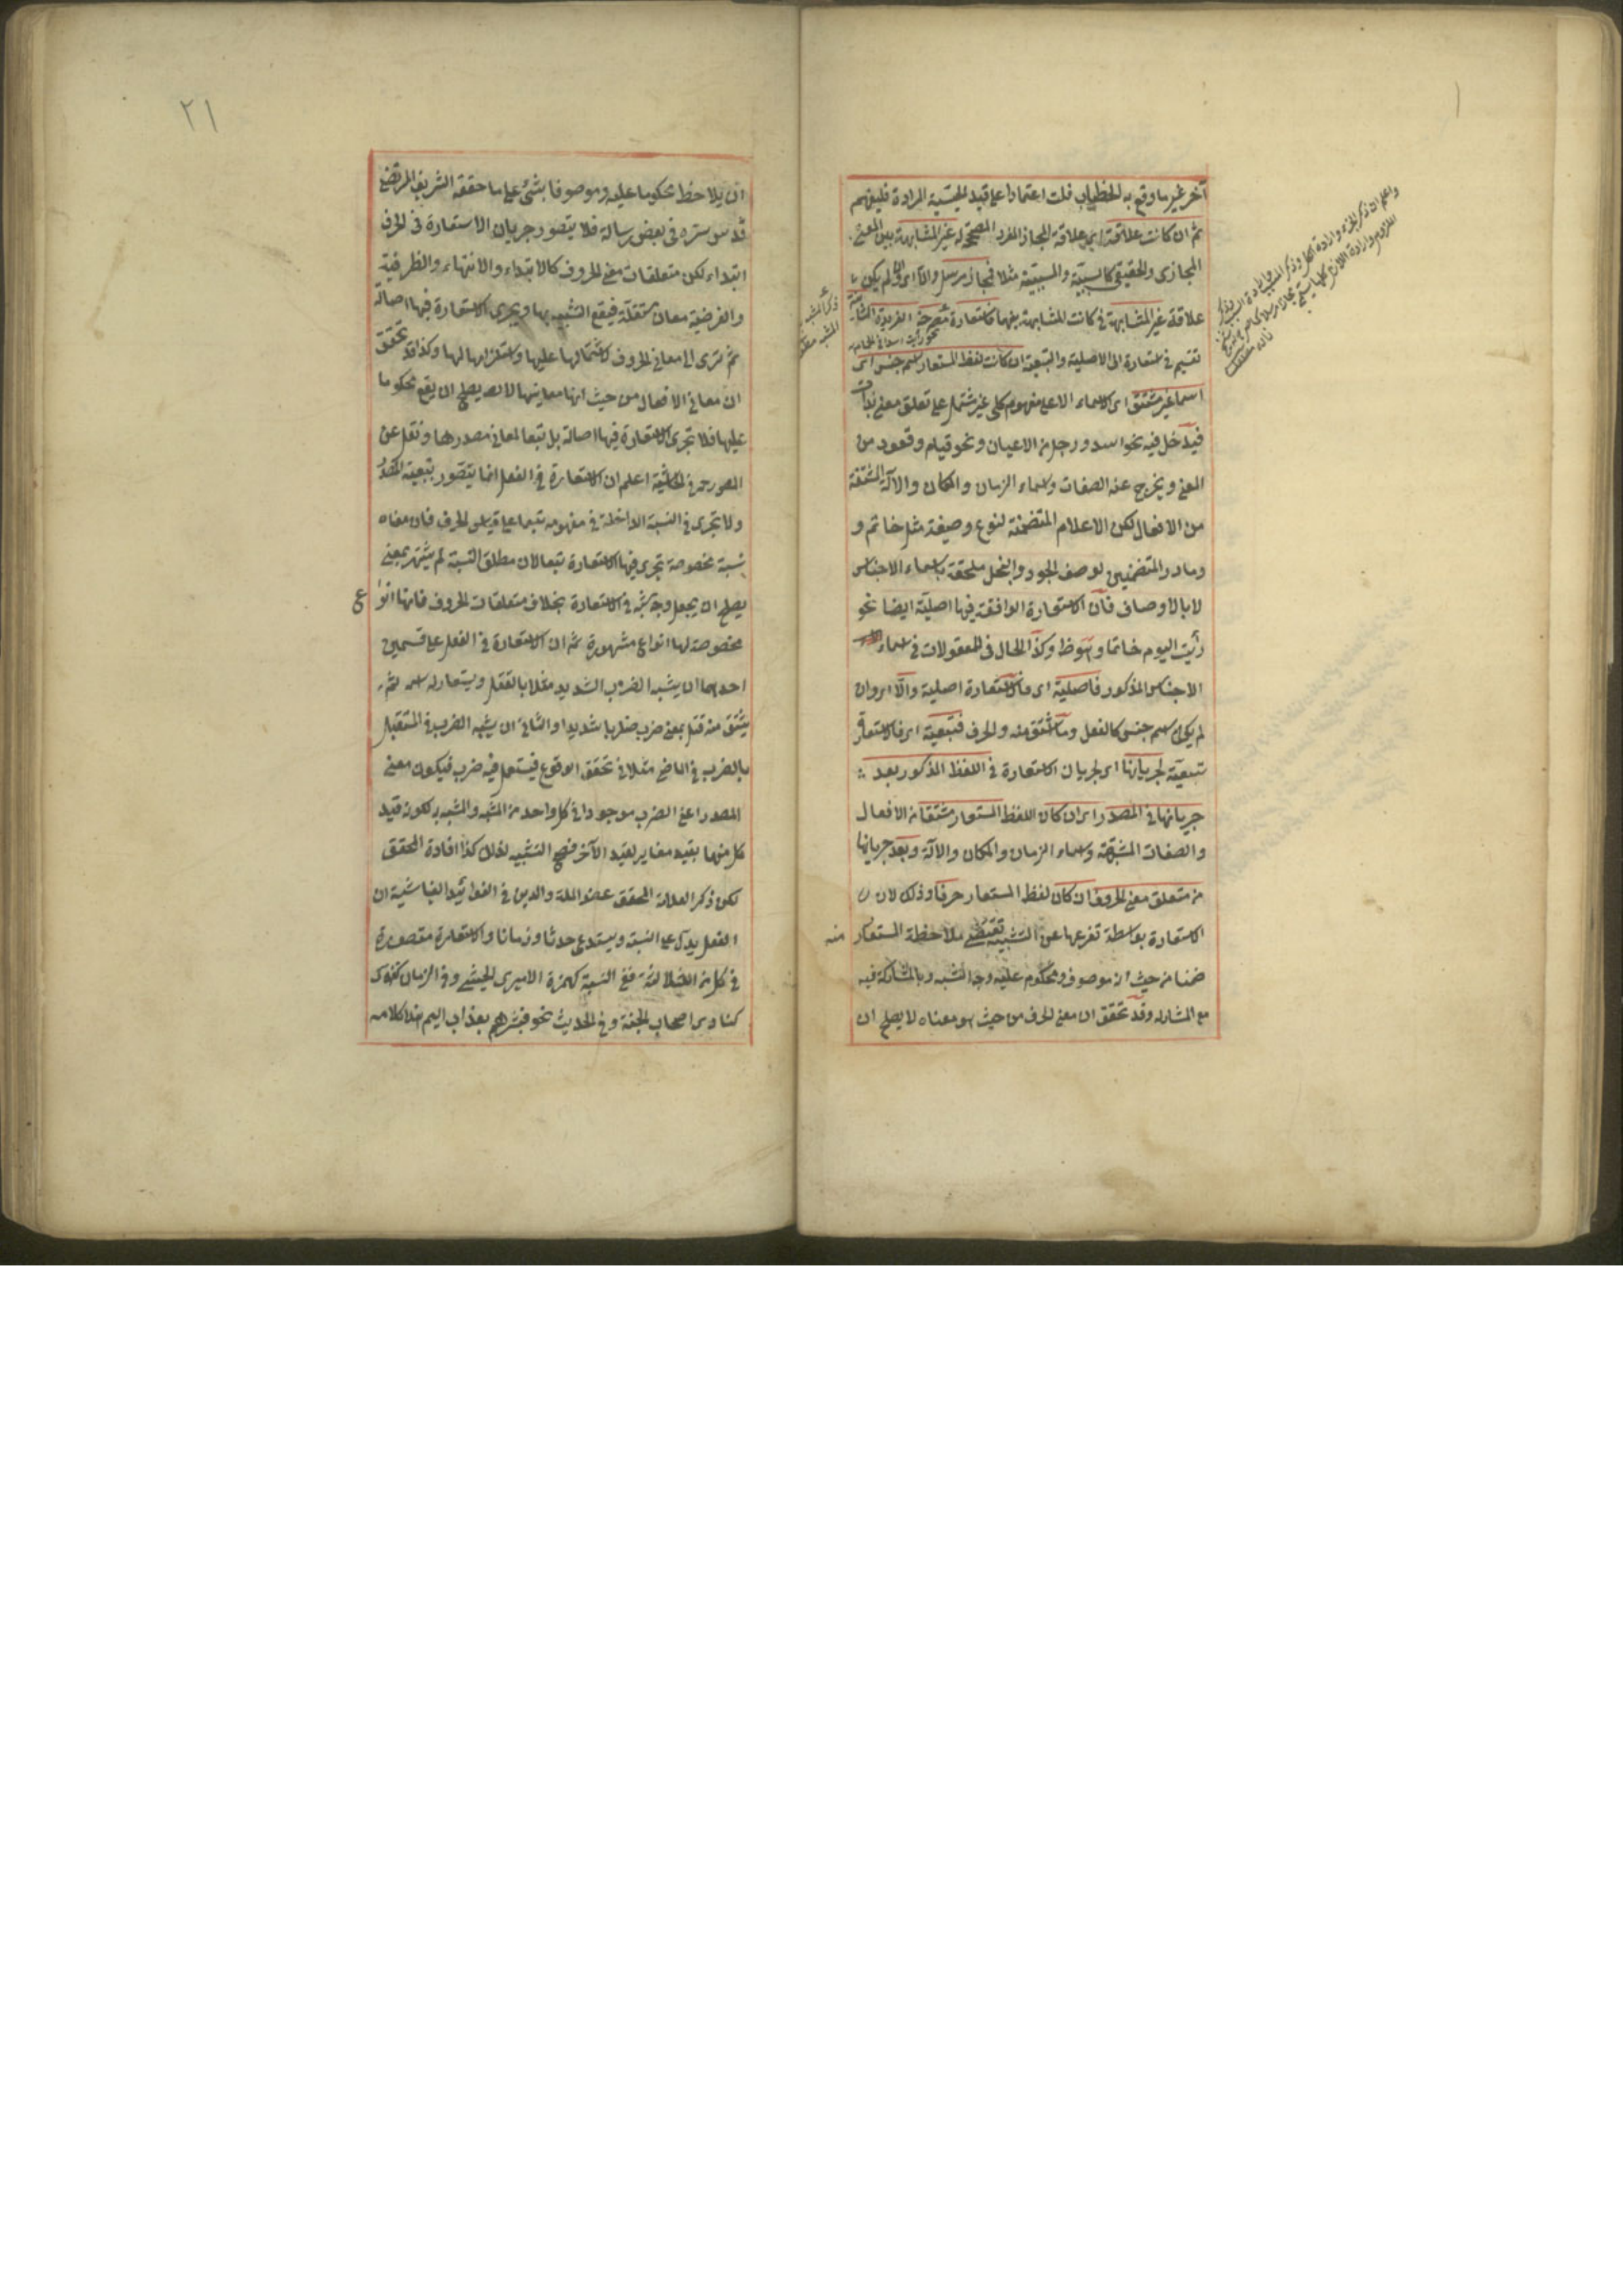 آخر غير ما وقع به التخاطب قلت اعتمادا على قيد الحيثية المرادة فليفهم
ثم ان كانت علاقته اى علاقة المجاز المفرد المصححة له غير المشابهة بين المعنى
المجازى والحقيقى كالسببية والمسببية مثلا فمجاز مرسل والا اى وان لم يكن
علاقة غير المشابهة كانت المشابهة بينهما فاستعارة مصرحة الفريدة الثانية
تقسيم الاستعارة الى الاصلية والتبعية ان كانت لفظ المستعار اسم جنس اى
اسما غير مشتق اى الاسماء الا على مفهوم كلى غير مشتمل على تعلق معنى بذات
فيدخل فيه نحو اسد ورجل من الاعيان ونحو قيام وقعود من
المعنى ويخرج عنه الصفات واسماء الزمان والمكان والآلة المشتقة
من الافعال لكن الاعلام المتضمنة لنوع وصيغة مثل خاتم و
ومادر المتضمنين لوصف الجود والبخل ملحقة باسماء الاجناس
لا بالاوصاف فان الاستعارة الواقعة فيها اصلية ايضا نحو
رأيت اليوم خاتما وكذا الحال فى المعقولات فى اسماء
الاجناس المذكور فاصلية اى فالاستعارة اصلية والا اى وان
لم يكن اسم جنس كالفعل وما اشتق منه والحرف فتبعية اى فالاستعارة
تبعية لجريانها اى لجريان الاستعارة فى اللفظ المذكور بعد
جريانها فى المصدر اى ان كان اللفظ المستعار مشتقا من الافعال
والصفات المشبهة واسماء الزمان والمكان والآلة وبعد جريانها
فى متعلق معنى الحرف ان كان لفظ المستعار حرفا وذلك لان
الاستعارة بواسطة تفرعها عن التشبيه تقتضى ملاحظة المستعار منه
ضمنا من حيث انه موصوف ومحكوم عليه وجه الشبه وبالمشاركة فيه
مع المشارك وقد تحقق ان معنى الحرف من حيث هو معناه لا يصلح ان
٢١
ان يلاحظ محكوما عليه وموصوفا بشئ على ما حققه الشريف المرتضى
قدس سره فى بعض رسالة فلا يتصور جريان الاستعارة فى الحرف
ابتداء لكن متعلقات معنى الحروف كالابتداء والانتهاء والظرفية
والغرضية معان مستقلة فيقع التشبيه بها ويجرى الاستعارة فيها اصالة
ثم تسرى الى معانى الحروف لاشتمالها عليها واستلزامها لها وكذا قد تحقق
ان معانى الافعال من حيث انها معانيها لا تصلح ان يقع محكوما
عليها فلا تجرى الاستعارة فيها اصالة بل تبعا لمعانى مصدرها ونقل عن
المص رحمه فى الحاشية اعلم ان الاستعارة فى الفعل انما يتصور بتبعية المصدر
ولا تجرى فى النسبة الداخلة فى مفهومه تبعا على قياس الحرف فان معناه
نسبة مخصوصة تجرى فيها الاستعارة تبعا لان مطلق النسبة لم يشتهر بمعنى
يصلح ان يجعل وجه شبه فى الاستعارة بخلاف متعلقات الحروف فانها انواع
مخصوصة لها انواع مشهورة ثم ان الاستعارة فى الفعل على قسمين
احدهما ان يشبه الضرب الشديد مثلا بالقتل ويستعار له اسمه ثم
يشتق منه قتل بمعنى ضرب ضربا شديدا والثانى ان يشبه الضرب فى المستقبل
بالضرب فى الماضى مثلا فى تحقق الوقوع فيستعمل فيه ضرب فيكون معنى
المصدر اعنى الضرب موجودا فى كل واحد من المشبه والمشبه به لكون قيد
كل منهما بقيد مغاير لقيد الآخر فصح التشبيه لذلك كذا افاده المحقق
لكن ذكر العلامة المحقق عضد الملة والدين فى الفوائد الغياثية ان
الفعل يدل على النسبة ويستدعى حدثا وزمانا والاستعارة متصورة
فى كل من الثلاثة ففى النسبة كهزم الامير الجيش وفى الزمان كقوله
كنادى اصحاب الجنة وفى الحديث نحو فبشرهم بعذاب اليم هذا كلامه